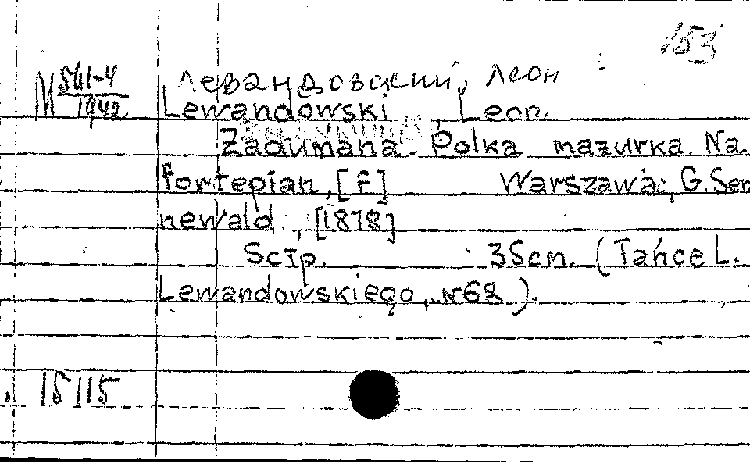 153
М 561-4
1942
Левандовский, Леон
Lewandowski, Leon.
Zadumana. Polka mazurka. Na
fortepian, [f] Warszawa:, G. Sen
newald:, [1878]
5 стр. 35 cm. (Tańce L.
Lewandowskiego, № 68).
15115